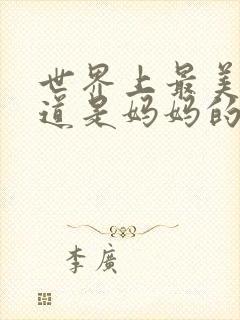 世界上最美
道是妈妈的
李廣